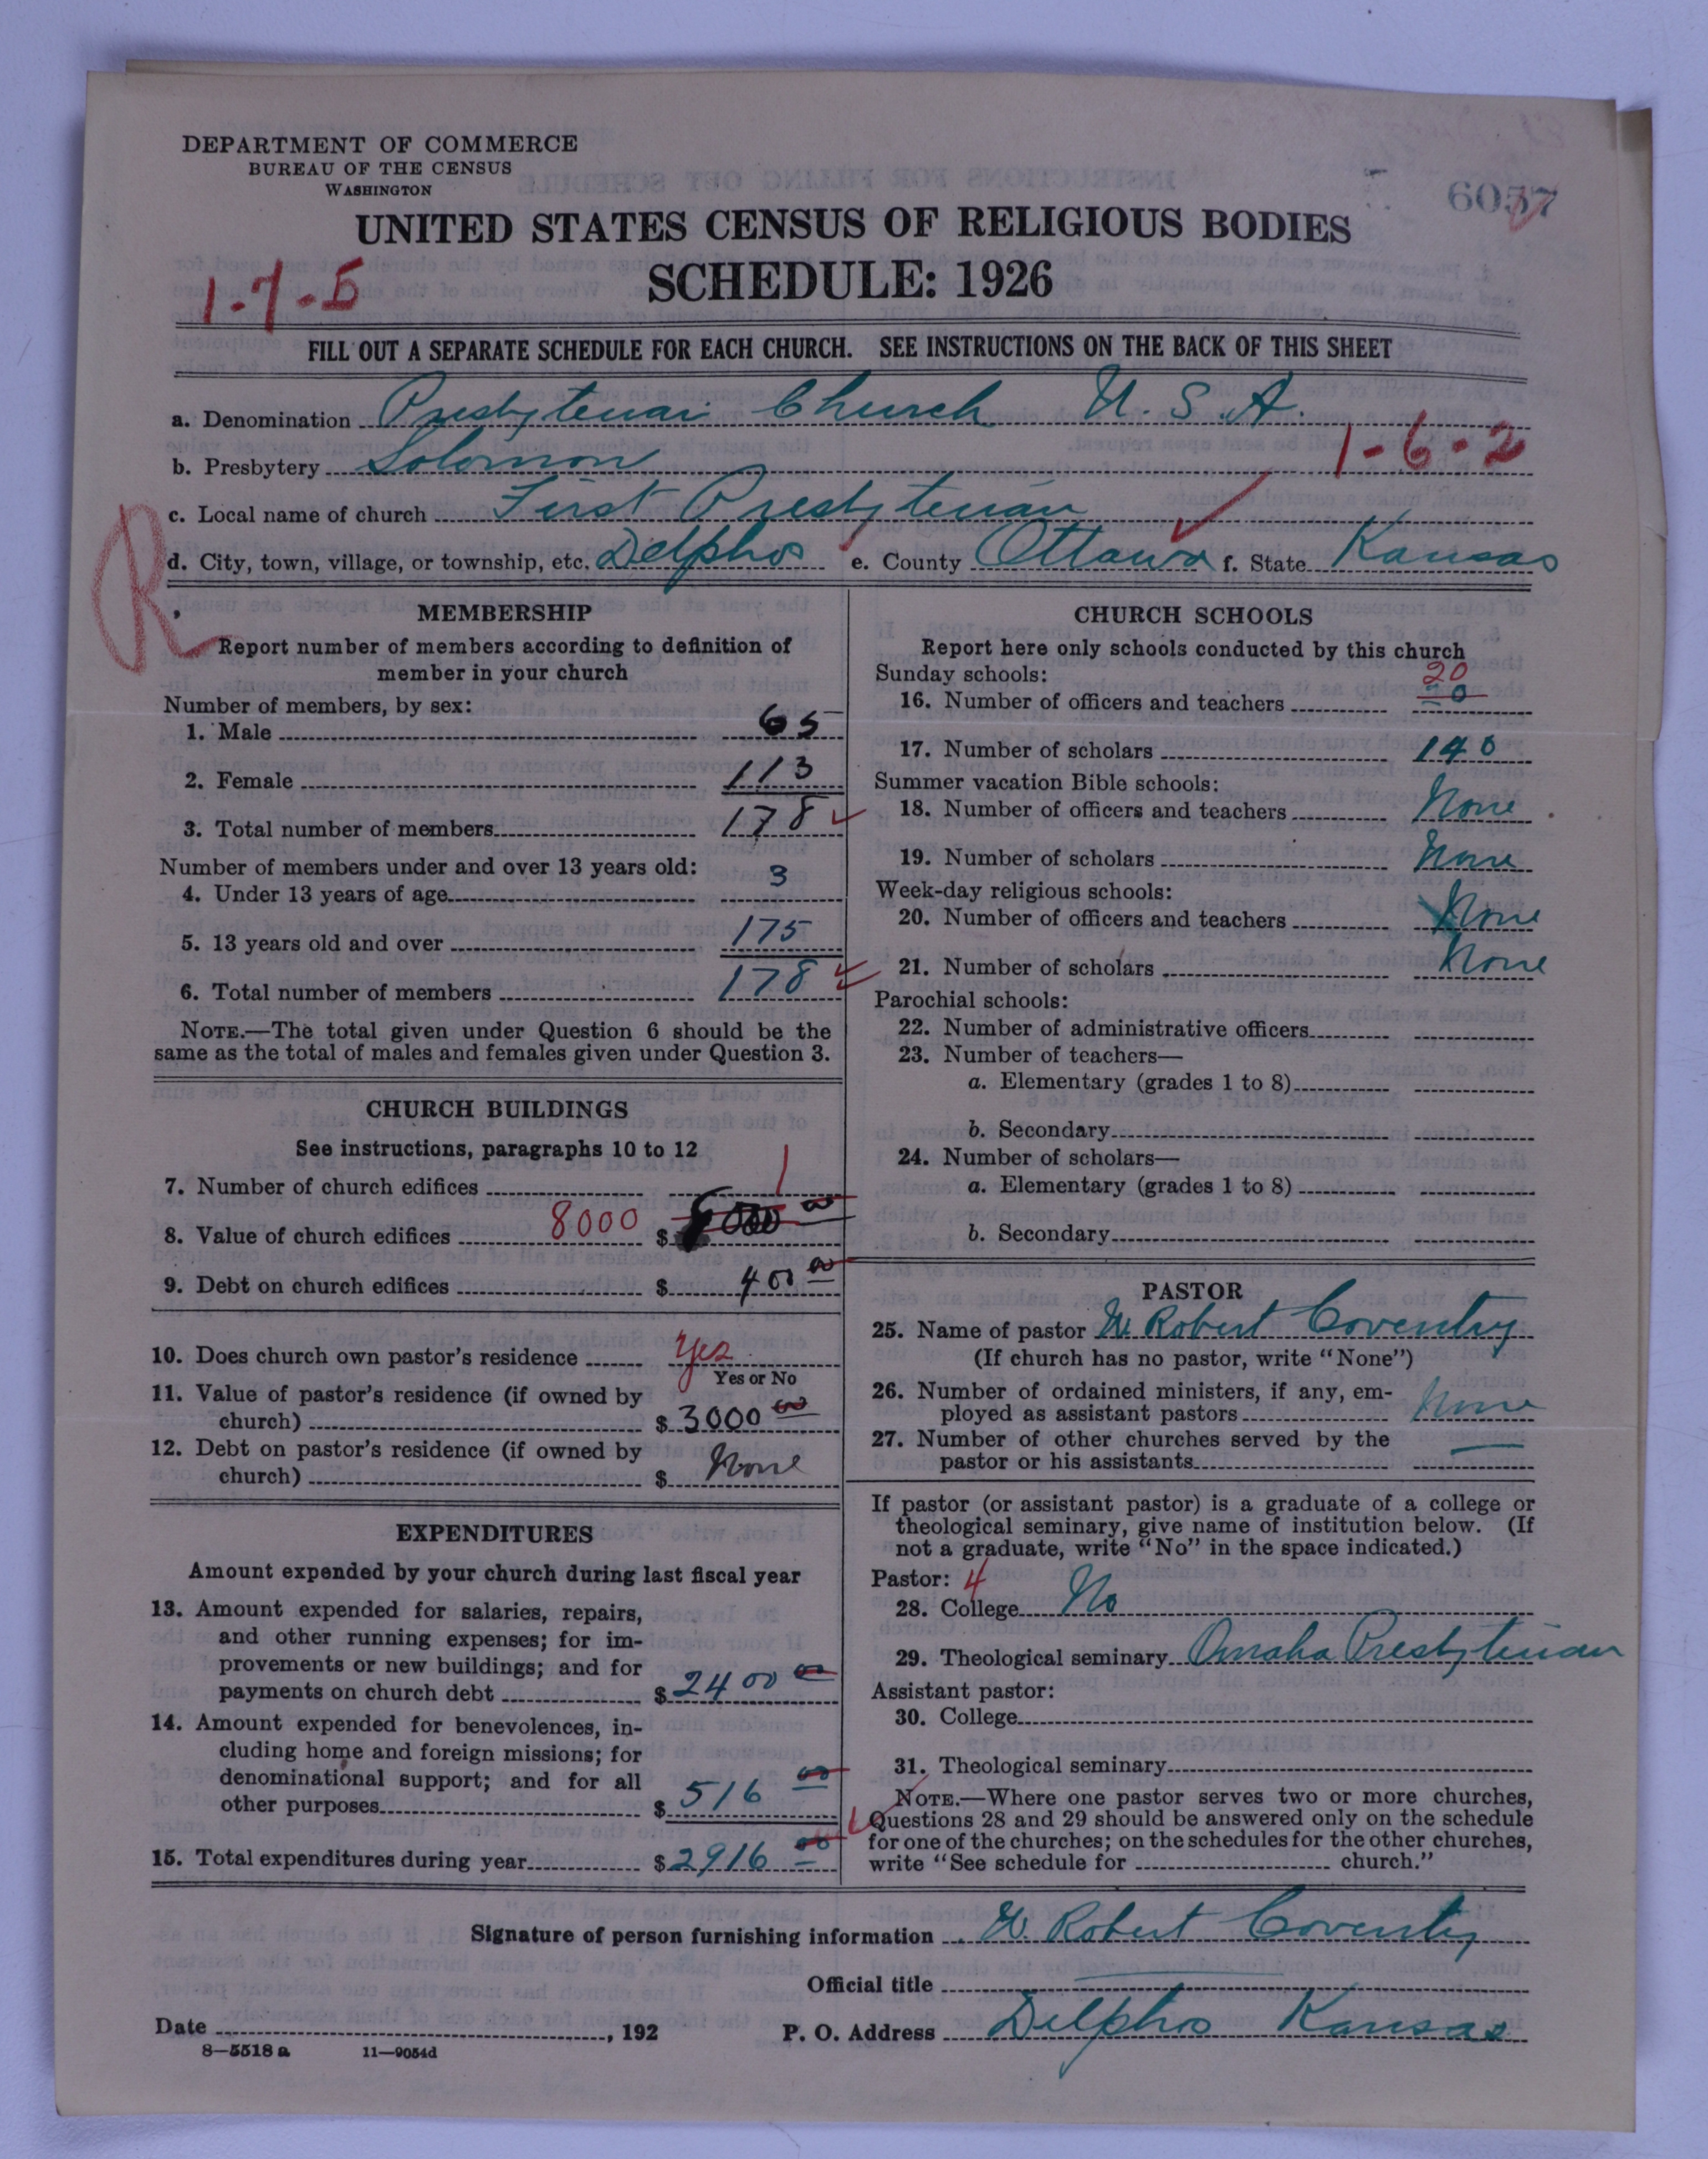 DEPARTMENT OF COMMERCE
BUREAU OF THE CENSUS
WASHINGTON
6057
UNITED STATES CENSUS OF RELIGIOUS BODIES
SCHEDULE: 1926
1-7-5
FILL OUT A SEPARATE SCHEDULE FOR EACH CHURCH. SEE INSTRUCTIONS ON THE BACK OF THIS SHEET
a. Denomination Presbyterian Church U. S. A.
b. Presbytery Solomon 1-6-2
c. Local name of church First Presbyterian
R
d. City, town, village, or township, etc. Delphos e. County Ottawa f. State Kansas
MEMBERSHIP
Report number of members according to definition of
member in your church
Number of members, by sex:
1. Male 65
2. Female 113
3. Total number of members 178
Number of members under and over 13 years old:
4. Under 13 years of age 3
5. 13 years old and over 175
6. Total number of members 178
NOTE.—The total given under Question 6 should be the
same as the total of males and females given under Question 3.
CHURCH BUILDINGS
See instructions, paragraphs 10 to 12
7. Number of church edifices 1
8. Value of church edifices 8000 $ 8000 00
9. Debt on church edifices $ 400 00
10. Does church own pastor's residence Yes
Yes or No
11. Value of pastor's residence (if owned by
church) $ 3000 00
12. Debt on pastor's residence (if owned by
church) $ None
EXPENDITURES
Amount expended by your church during last fiscal year
13. Amount expended for salaries, repairs,
and other running expenses; for im-
provements or new buildings; and for
payments on church debt $ 2400 00
14. Amount expended for benevolences, in-
cluding home and foreign missions; for
denominational support; and for all
other purposes $ 516 00
15. Total expenditures during year $ 2916 00
CHURCH SCHOOLS
Report here only schools conducted by this church
Sunday schools:
20
16. Number of officers and teachers 20
17. Number of scholars 140
Summer vacation Bible schools:
18. Number of officers and teachers None
19. Number of scholars None
Week-day religious schools:
20. Number of officers and teachers None
21. Number of scholars None
Parochial schools:
22. Number of administrative officers
23. Number of teachers—
a. Elementary (grades 1 to 8)
b. Secondary
24. Number of scholars—
a. Elementary (grades 1 to 8)
b. Secondary
PASTOR
25. Name of pastor W. Robert Coventry
(If church has no pastor, write "None")
26. Number of ordained ministers, if any, em-
ployed as assistant pastors None
27. Number of other churches served by the
pastor or his assistants
If pastor (or assistant pastor) is a graduate of a college or
theological seminary, give name of institution below. (If
not a graduate, write "No" in the space indicated.)
Pastor: 4
28. College No
29. Theological seminary Omaha Presbyterian
Assistant pastor:
30. College
31. Theological seminary
NOTE.—Where one pastor serves two or more churches,
Questions 28 and 29 should be answered only on the schedule
for one of the churches; on the schedules for the other churches,
write "See schedule for church."
Signature of person furnishing information W. Robert Coventry
Official title
Date , 192 P. O. Address Delphos Kansas
8—5518 a 11—9054d